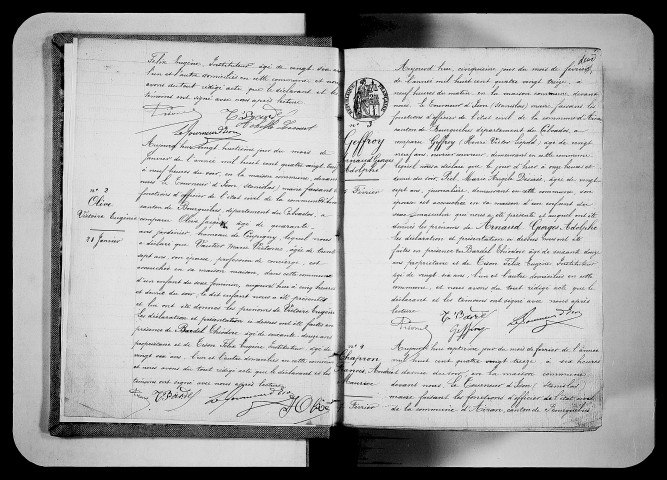 Félix Eugène, Instituteur âgé de vingt six ans
l'un et l'autre domiciliés en cette commune et nous
avons du tout rédigé acte que le déclarant et les
témoins ont signé avec nous après lecture
T Bardel
Le Tourneur d'Ison
n° 2
Olive
Victoire Eugénie
28 Janvier
Aujourd'hui vingt huitième jour du mois de
janvier de l'année mil huit cent quatre vingt treize
à neuf heures du soir, en la maison commune devant
nous Le Tourneur d'Ison (Stanislas) maire faisant les
fonctions d'officier de l'état civil de la commune
canton de Bourguébus, département du Calvados, a
comparu Olive âgé de quarante
ans jardinier hameau de lequel nous
a déclaré que Vautier Marie Victorine âgée de trente
sept ans, son épouse profession de concierge, est
accouchée en sa maison, dans cette commune
d'un enfant du sexe féminin, aujourd'hui à cinq heures
et demie du soir, le dit enfant nous a été présenté
et lui ont été donnés les prénoms de Victoire Eugénie
les déclaration et présentation ci dessus ont été faites en
présence de Bardel Théodore âgé de soixante douze ans
propriétaire et de Tison Félix Eugène Instituteur âgé de
vingt six ans, l'un et l'autre domiciliés en cette commune
et nous avons du tout rédigé acte que le déclarant et les
témoins ont signé avec nous après lecture
T Bardel Le Tourneur d'Ison Olive
n° 3
Geffroy
Arnaud Georges
Adolphe
5 Février
Aujourd'hui, cinquième jour du mois de février
de l'année mil huit cent quatre vingt treize, à
neuf heures du matin en la maison commune devant
nous Le Tourneur d'Ison (Stanislas) maire, faisant les
fonctions d'officier de l'état civil de la commune d'Airan
canton de Bourguébus, département du Calvados, a
comparu Geffroy Henri Victor Léopold, âgé de vingt
neuf ans, ouvrier, demeurant en cette commune
lequel nous a déclaré que le jour d'hier à onze heures et
demie du soir, Piel Marie Angèle Désirée, âgée de vingt
sept ans, journalière, demeurant en cette commune, son
épouse est accouchée en sa maison d'un enfant du
sexe masculin qui nous a été présenté et auquel ont été
donnés les prénoms de Arnaud Georges Adolphe
les déclaration et présentation ci dessus nous ont été
faites en présence de Bardel Théodore âgé de soixante douze
ans propriétaire et de Tison Félix Eugène Instituteur
âgé de vingt six ans, l'un et l'autre domiciliés en cette
commune, et nous avons du tout rédigé acte que le
déclarant et les témoins ont signé avec nous après
lecture
T Bardel
Geffroy Le Tourneur d'Ison
n° 4
Chapron
Francis, André
Maurice
7 Février
Aujourd'hui septième jour du mois de février de l'année
mil huit cent quatre vingt treize à six heures
et demie du soir, en la maison commune
devant nous, Le Tourneur d'Ison, Stanislas
maire faisant les fonctions d'officier de l'état civil
de la commune d'Airan, canton de Bourguébus